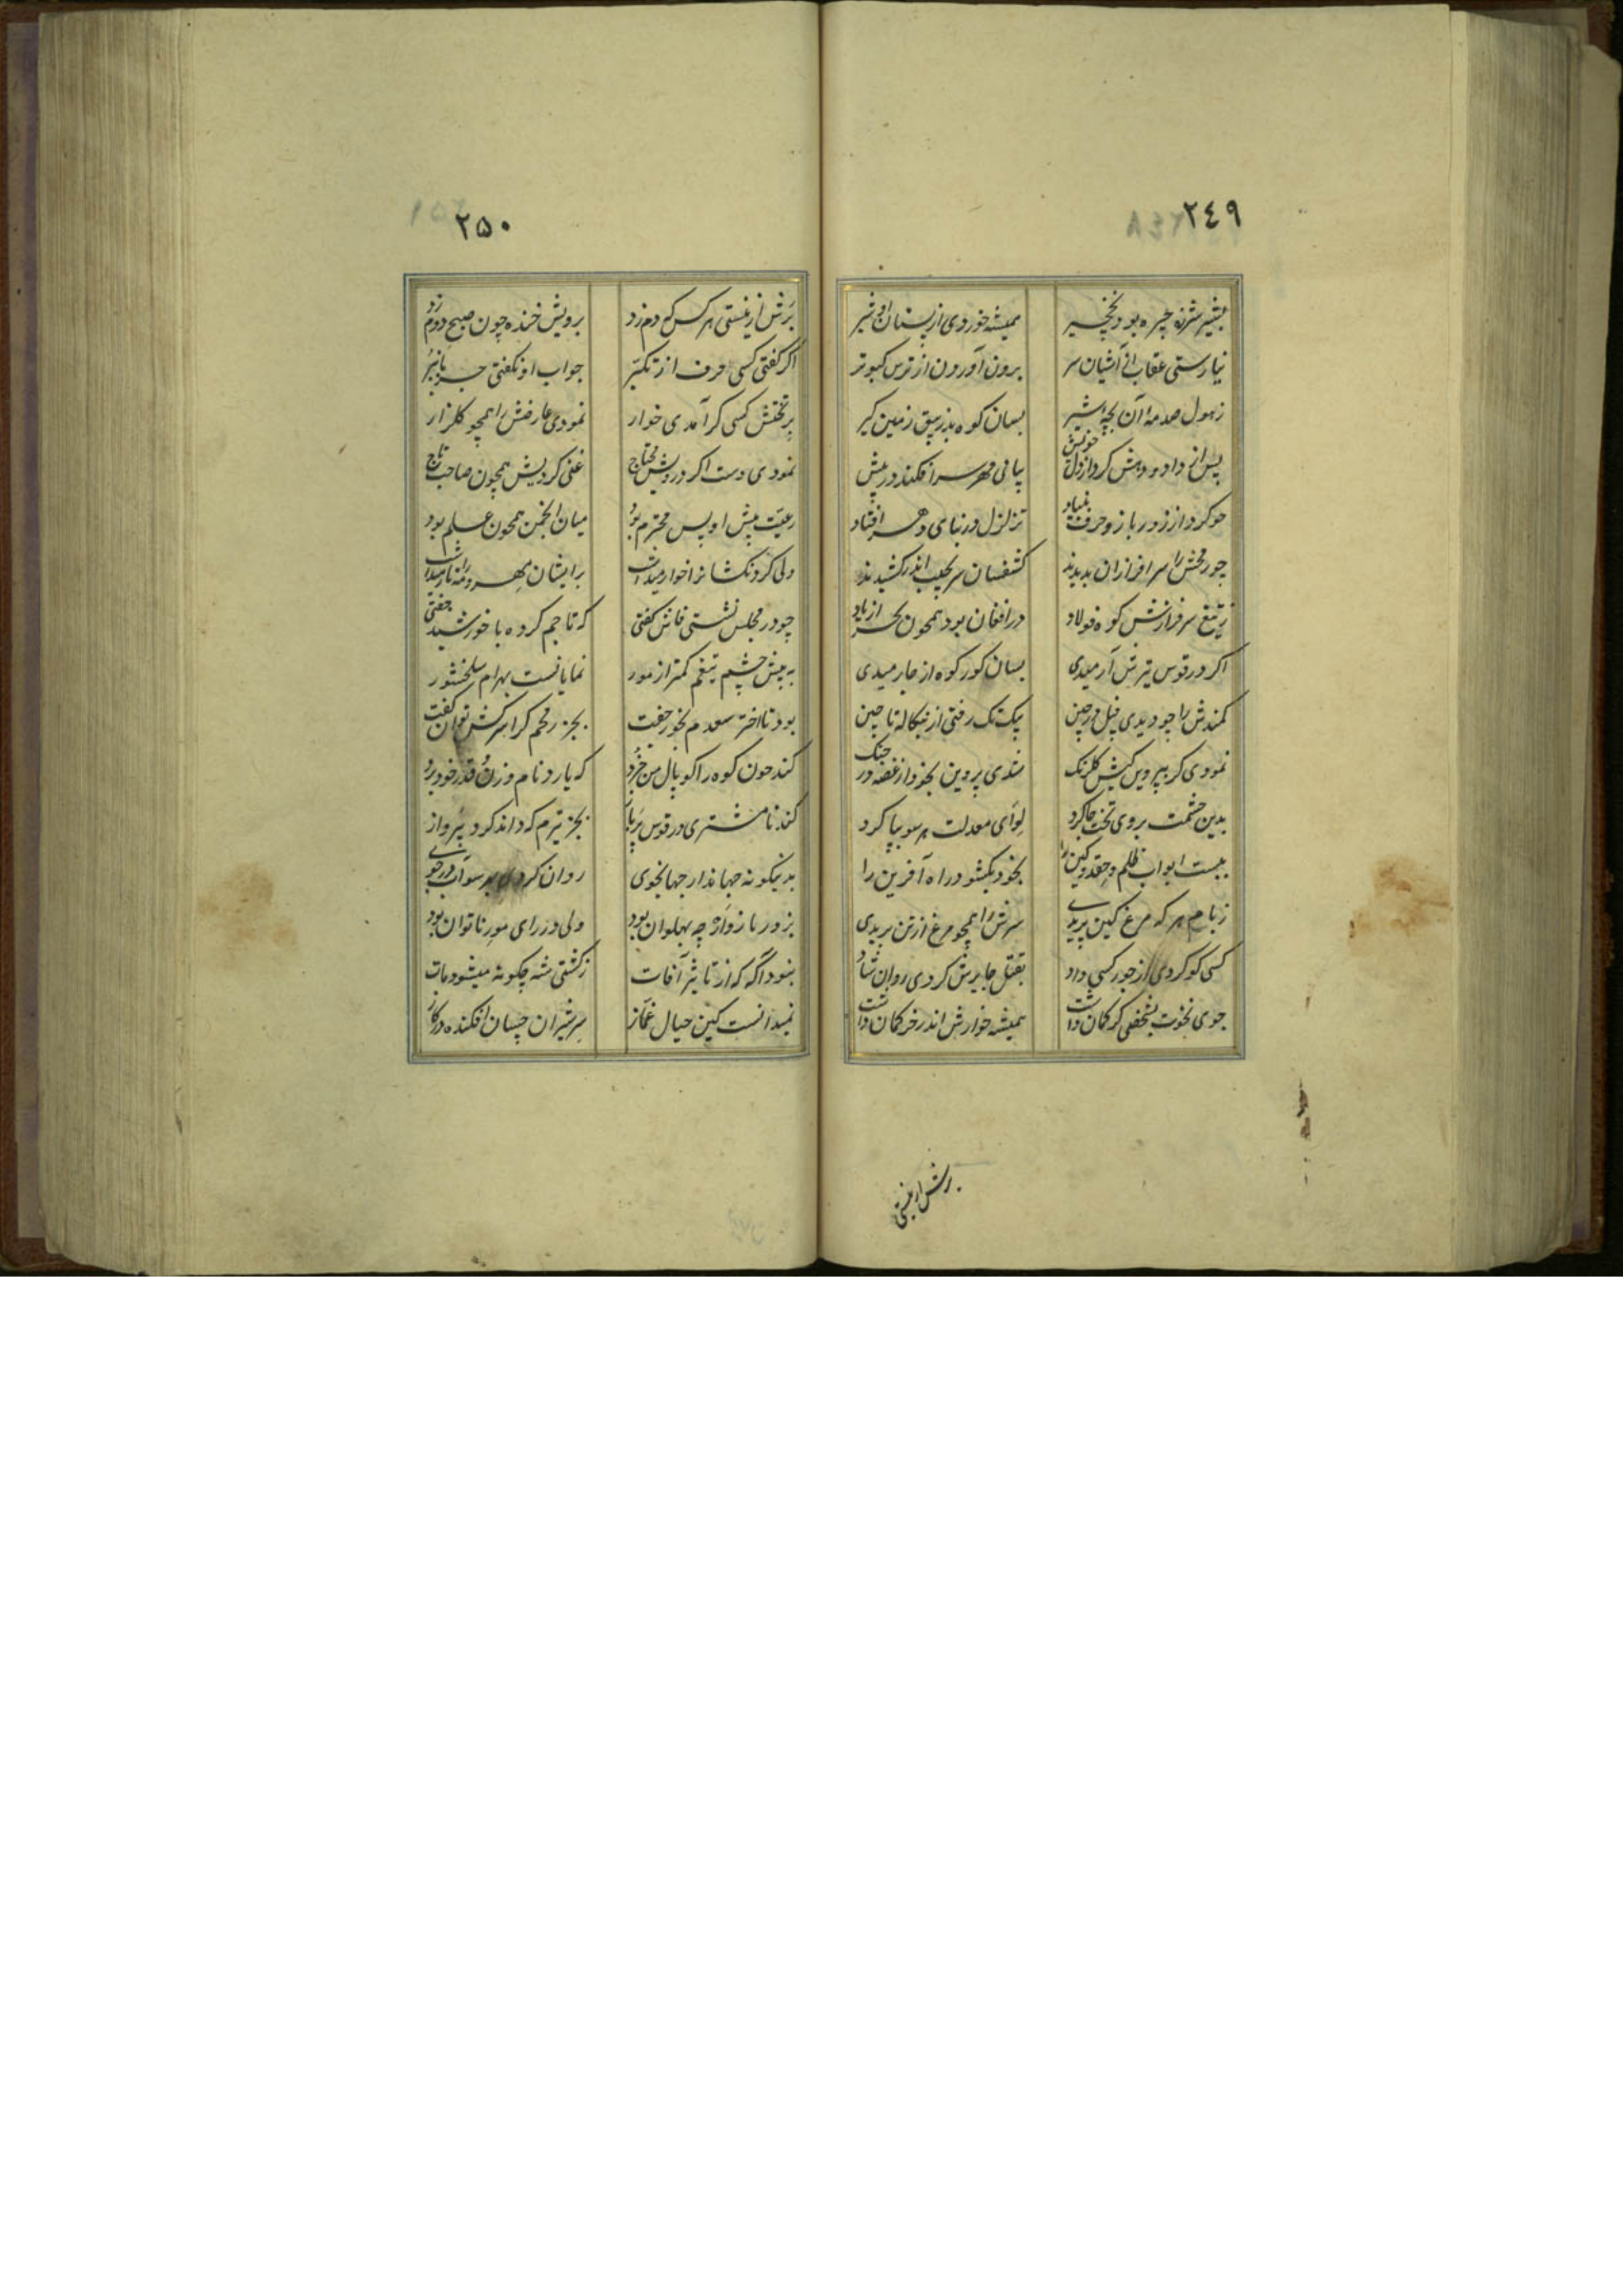 ٢٤٩
بشیر شرزه چیره بود نخچیر همیشه خوردی از پستان او شیر
نیارستی عقاب از آشیان سر برون آوردن از ترس کبوتر
ز هول صدمه آن بسان کوه پذیرفتی زمین گیر
پس از داد و دهش کرد از دل خویش بپای مهر سر افکند در پیش
چو کرد از زور بازو حرف بنیاد تزلزل در بنای دهر افتاد
چو رخش را سرافرازان بدیدند کشفسان سر بجیب اندر کشیدند
ز تیغ سرفرازش کوه فولاد در افغان بود همچون بحر از باد
اگر در قوس تیرش آرمیدی بسان گور کوه از جا رمیدی
کمندش را چو دیدی فیل در چین بیک تک رفتی از بنگاله تا چین
نمودی گر بپرویس کیش گلرنگ شدی پروین بخود از غصه در جنگ
بدین حشمت بروی تخت جا کرد لوای معدلت هر سو بپا کرد
ببست ابواب ظلم و حقد و کین را بخود بگشود راه آفرین را
ز بام هر که مرغ کین پریدی سرش را همچو مرغ از تن بریدی
کسی کو کردی از جور کسی داد بقتل جابرش کردی روان شاد
جوی نخوت بشخصی گر گمان داشت همیشه خوارش اندر خر کمان داشت
برش از نیستی
٢٥٠
برش از نیستی هر کس که دم زد برویش خنده چون صبح دوم زد
اگر گفتی کسی حرف از تکبر جواب او نگفتی جز بانبر
بر تختش کسی گر آمدی خوار نمودی عارضش را همچو گلزار
نمودی دست اگر درویش محتاج غنی کردیش همچون صاحب تاج
رعیت پیش او پس محترم بود میان انجمن همچون علم بود
ولی گردنکشانرا خوار میداشت بر ایشان مهر و مه را تار میداشت
چو در مجلس نشستی فاش گفتی که تا جم کرده با خورشید جفتی
به پیش چشم تیغم کمتر از مور نمایانست بهرام سلحشور
بود تا اختر سعدم بخور جفت بجز رمحم کرا سرکش توان گفت
کند چون کوه را کوپال من خرد که یارد نام وزن قدر خود برد
کند تا مشتری در قوس پرباز بجز تیرم که داند کرد پرواز
بدینگونه جهاندار جهانجوی روان کردی بهر سو آب در جوی
بزور بازو ار چه پهلوان بود ولی در رای مور ناتوان بود
نبود آگه که از تاثیر آفات ز کشتی شه چگونه میشود مات
نمیدانست کین حیال غماز سر شیران چسان افکنده در گاز